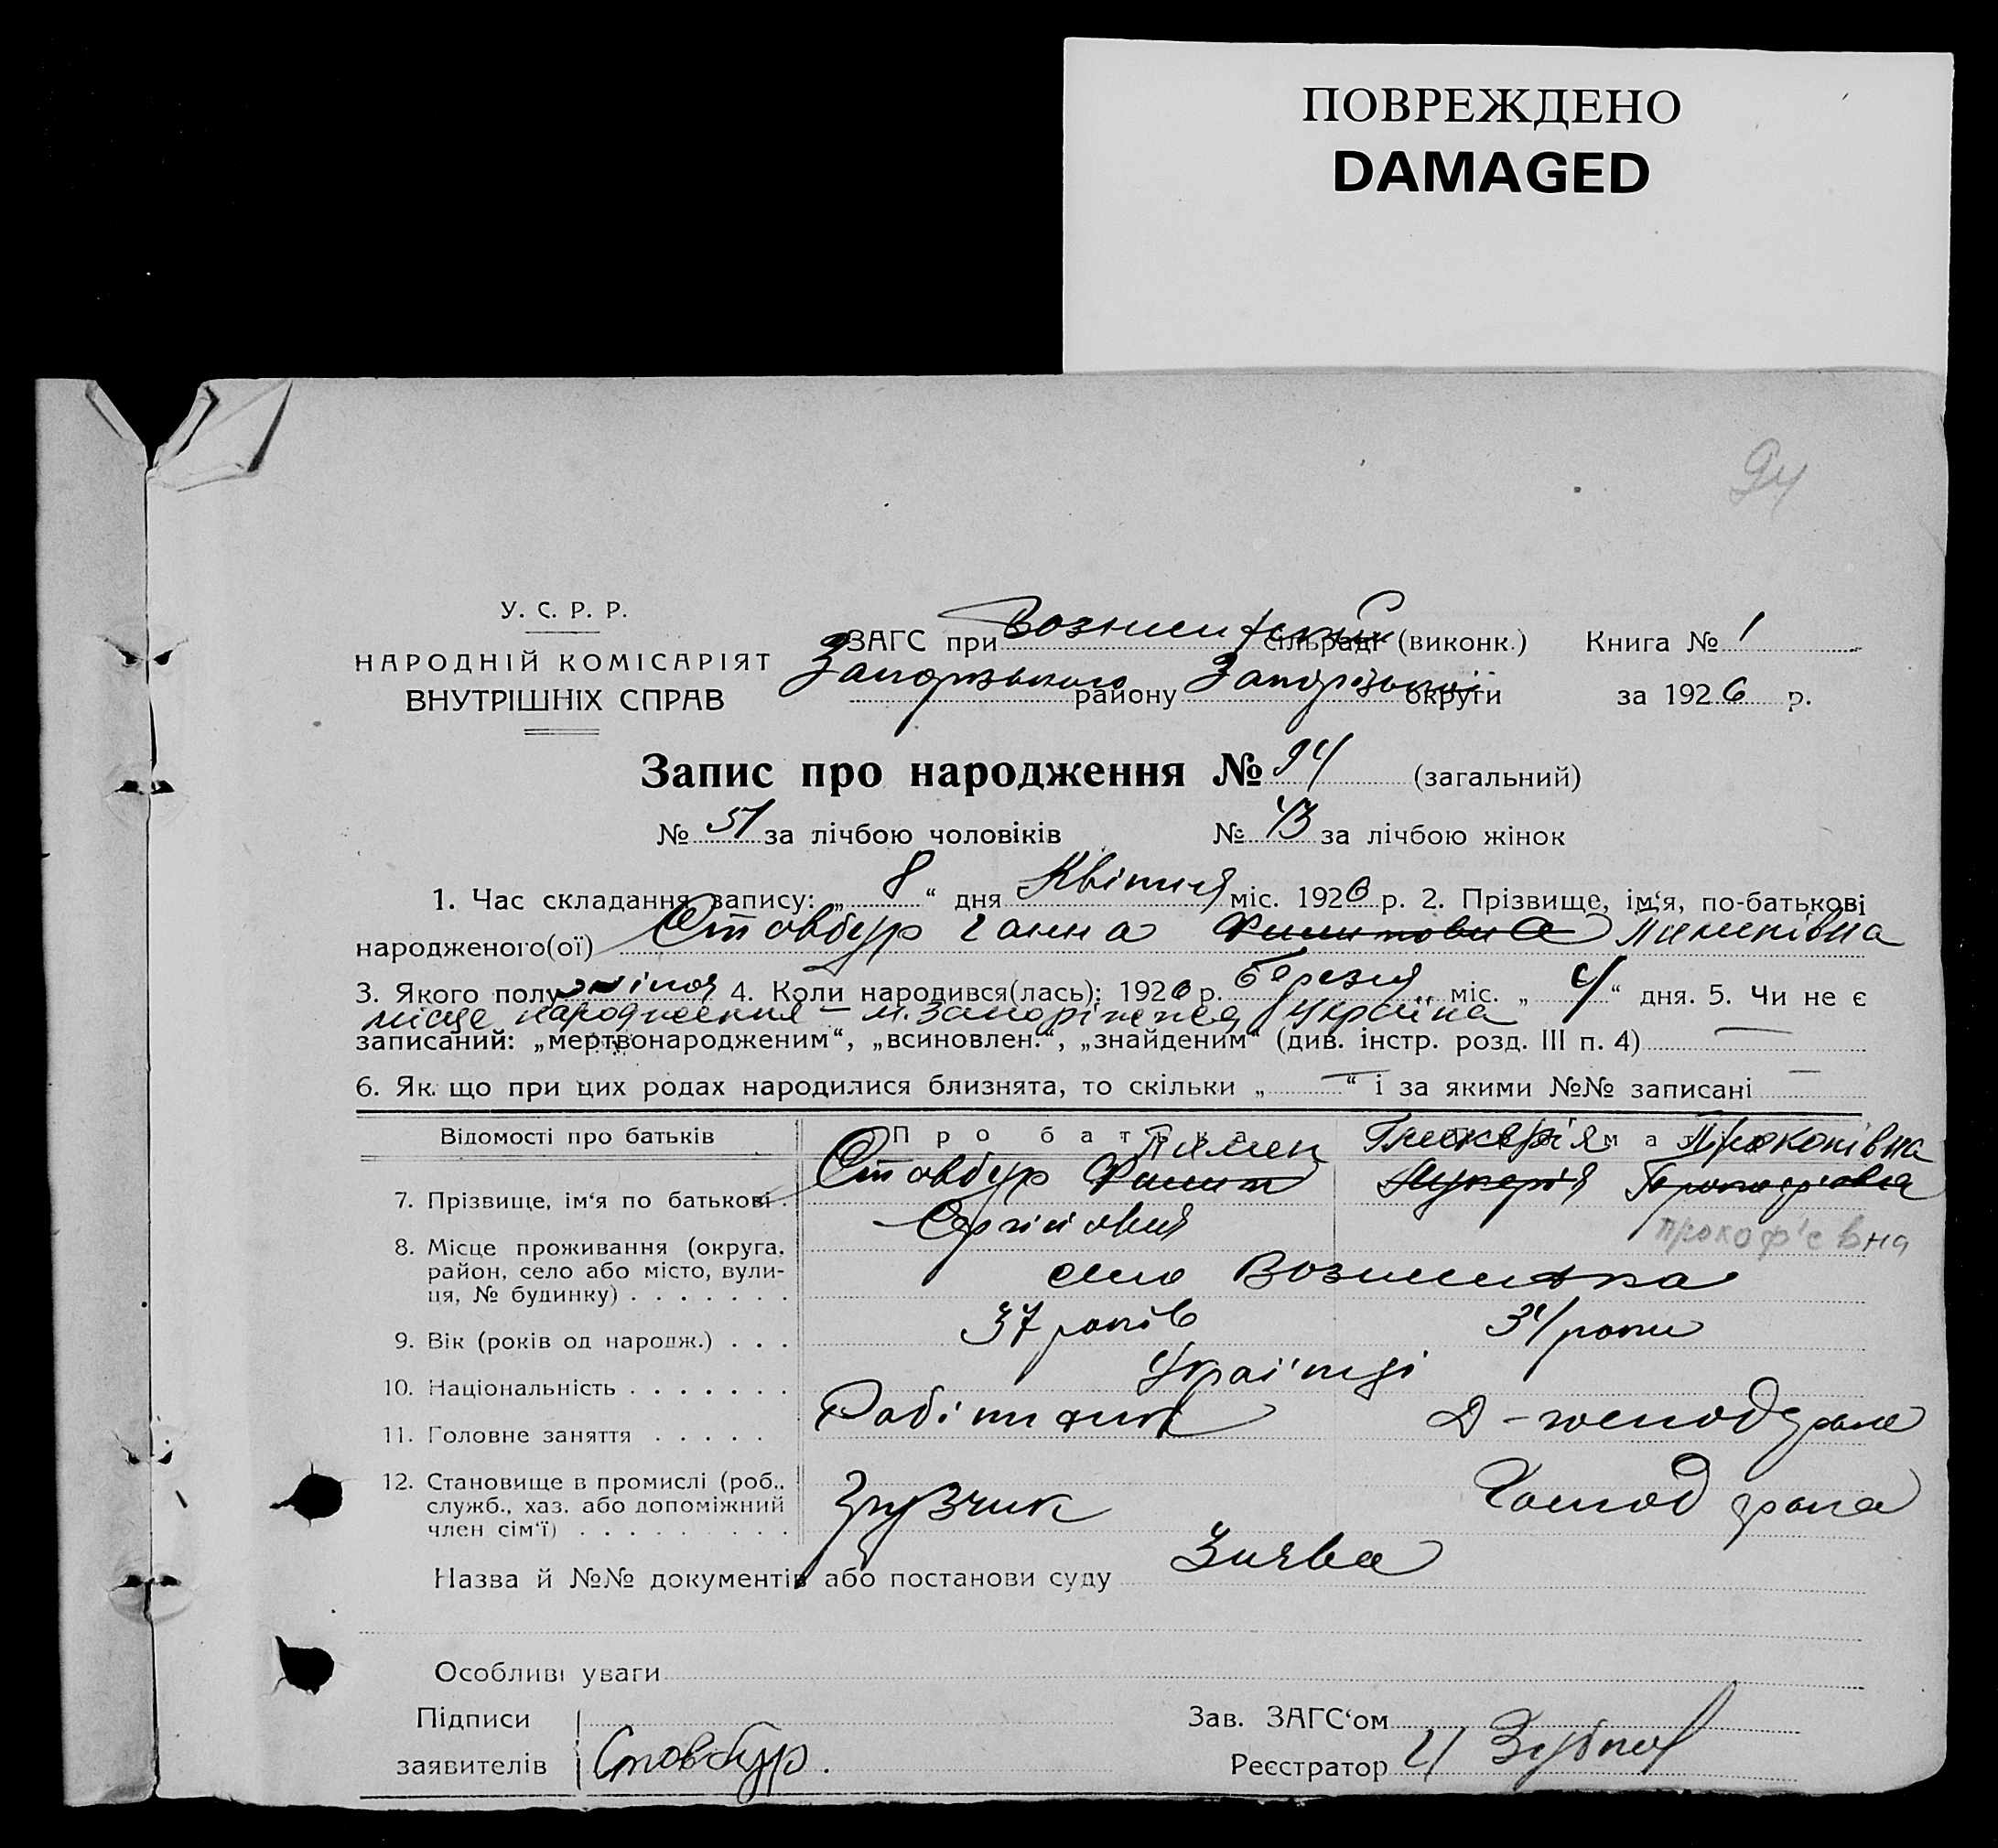 ПОВРЕЖДЕНО
DAMAGED
94
У. С. Р. Р.
НАРОДНІЙ КОМІСАРІЯТ
ВНУТРІШНІХ СПРАВ
ЗАГС при сільраді (виконк.) Книга № 1
Запорізького району Запорізької округи за 1926 р.
Запис про народження № 94 (загальний)
№ 51 за лічбою чоловіків № 43 за лічбою жінок
1. Час складання запису: „ 8 “ дня Квітня міс. 1926 р. 2. Прізвище, ім‘я, по-батькові
народженого(ої) Стовбур Ганна Филиповна Пименівна
3. Якого полу жіноч 4. Коли народився(лась): 1926 р. березня міс. „ 4 “ дня. 5. Чи не є
місце народження – м. Запоріжжя Україна
записаний: „мертвонародженим“, „всиновлен.“, „знайденим“ (див. інстр. розд. III п. 4) —
6. Як що при цих родах народилися близнята, то скільки „ — “ і за якими №№ записані —
Відомості про батьків Про батька Про матір
Пимен Гликерія Прокопівна
7. Прізвище, ім‘я по батькові Стовбур Филип Лукерія
Сергійович прокоф'євна
8. Місце проживання (округа, район, село або місто, вулиця, № будинку) село Вознесенка
9. Вік (років од народж.) 37 років 34 роки
10. Національність Українці
11. Головне заняття Робітник Д-господарка
12. Становище в промислі (роб., служб., хаз. або допоміжний член сім‘ї) Грузчик Господарка
Назва й №№ документів або постанови суду Заява
Особливі уваги
Підписи Зав. ЗАГС‘ом
заявителів Стовбур. Реєстратор